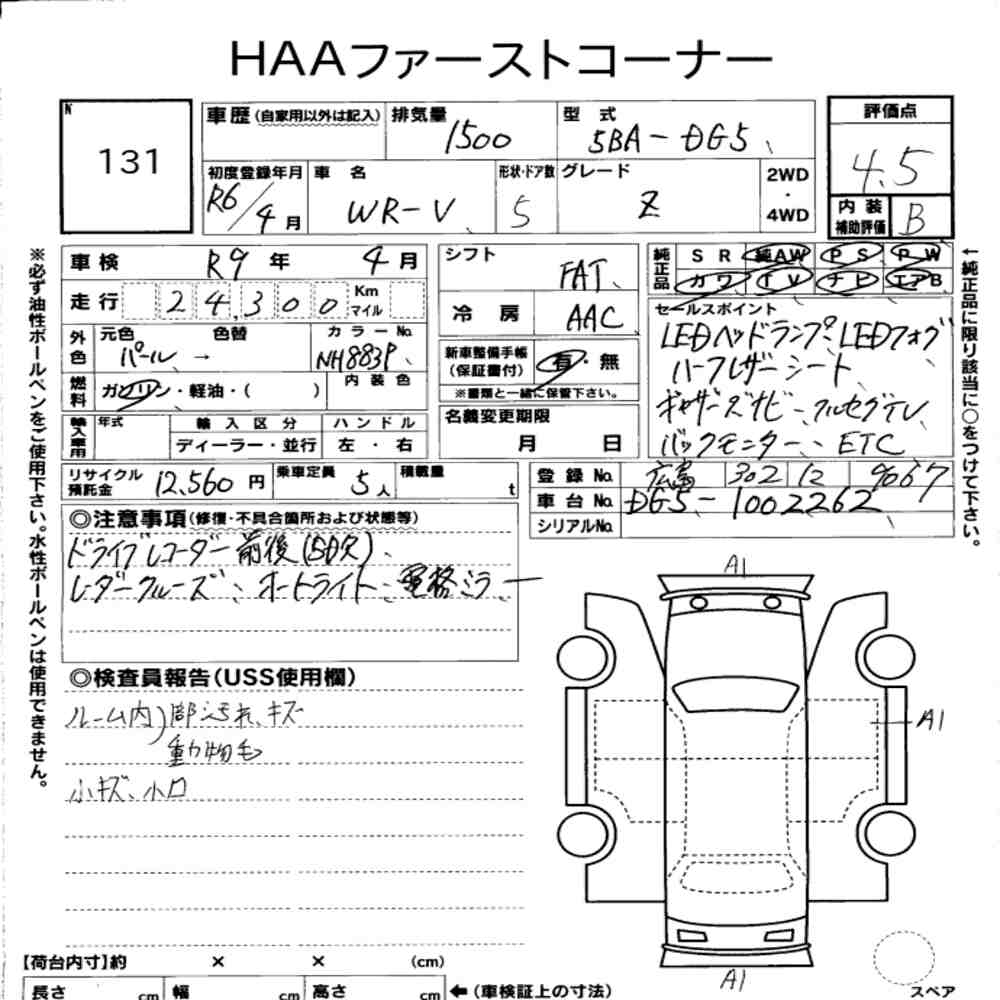 HAAファーストコーナー
N
131
車歴(自家用以外は記入)
排気量
1500
型 式
5BA-DG5
評価点
4.5
初度登録年月
R6/4月
車 名
WR-V
形状・ドア数
5
グレード
Z
2WD
・
4WD
内装補助評価
B
車検
R9年 4月
走行
24,300
Km
マイル
外色
元色
色替
カラーNo.
パール →
NH883P
燃料
ガソリン・軽油・( )
内装色
輸入車用
年式
輸入区分
ハンドル
ディーラー・並行
左・右
シフト
FAT
冷 房
AAC
新車整備手帳
(保証書付)
有・無
※書類と一緒に保管下さい。
名義変更期限
月 日
純正品
SR
純AW
PS
PW
カワ
TV
ナビ
エアB
セールスポイント
LEDヘッドランプ、LEDフォグ
ハーフレザーシート
ギャザーズナビ、フルセグTV
バックモニター、ETC
リサイクル預託金
12,560円
乗車定員
5人
積載量
t
登録No.
広島 302 12
車台No.
DG5-1002262
シリアルNo.
◎注意事項(修復・不具合箇所および状態等)
ドライブレコーダー前後(SD欠)、
レーダークルーズ、オートライト、電格ミラー
◎検査員報告(USS使用欄)
ルーム内)部汚れ、キズ
動物毛
小キズ、小凹
A1
A1
A1
スペア
【荷台内寸】約 × × (cm)
長さ cm 幅 cm 高さ cm ←(車検証上の寸法)
※必ず油性ボールペンをご使用下さい。水性ボールペンは使用できません。
←純正品に限り該当に○をつけて下さい。